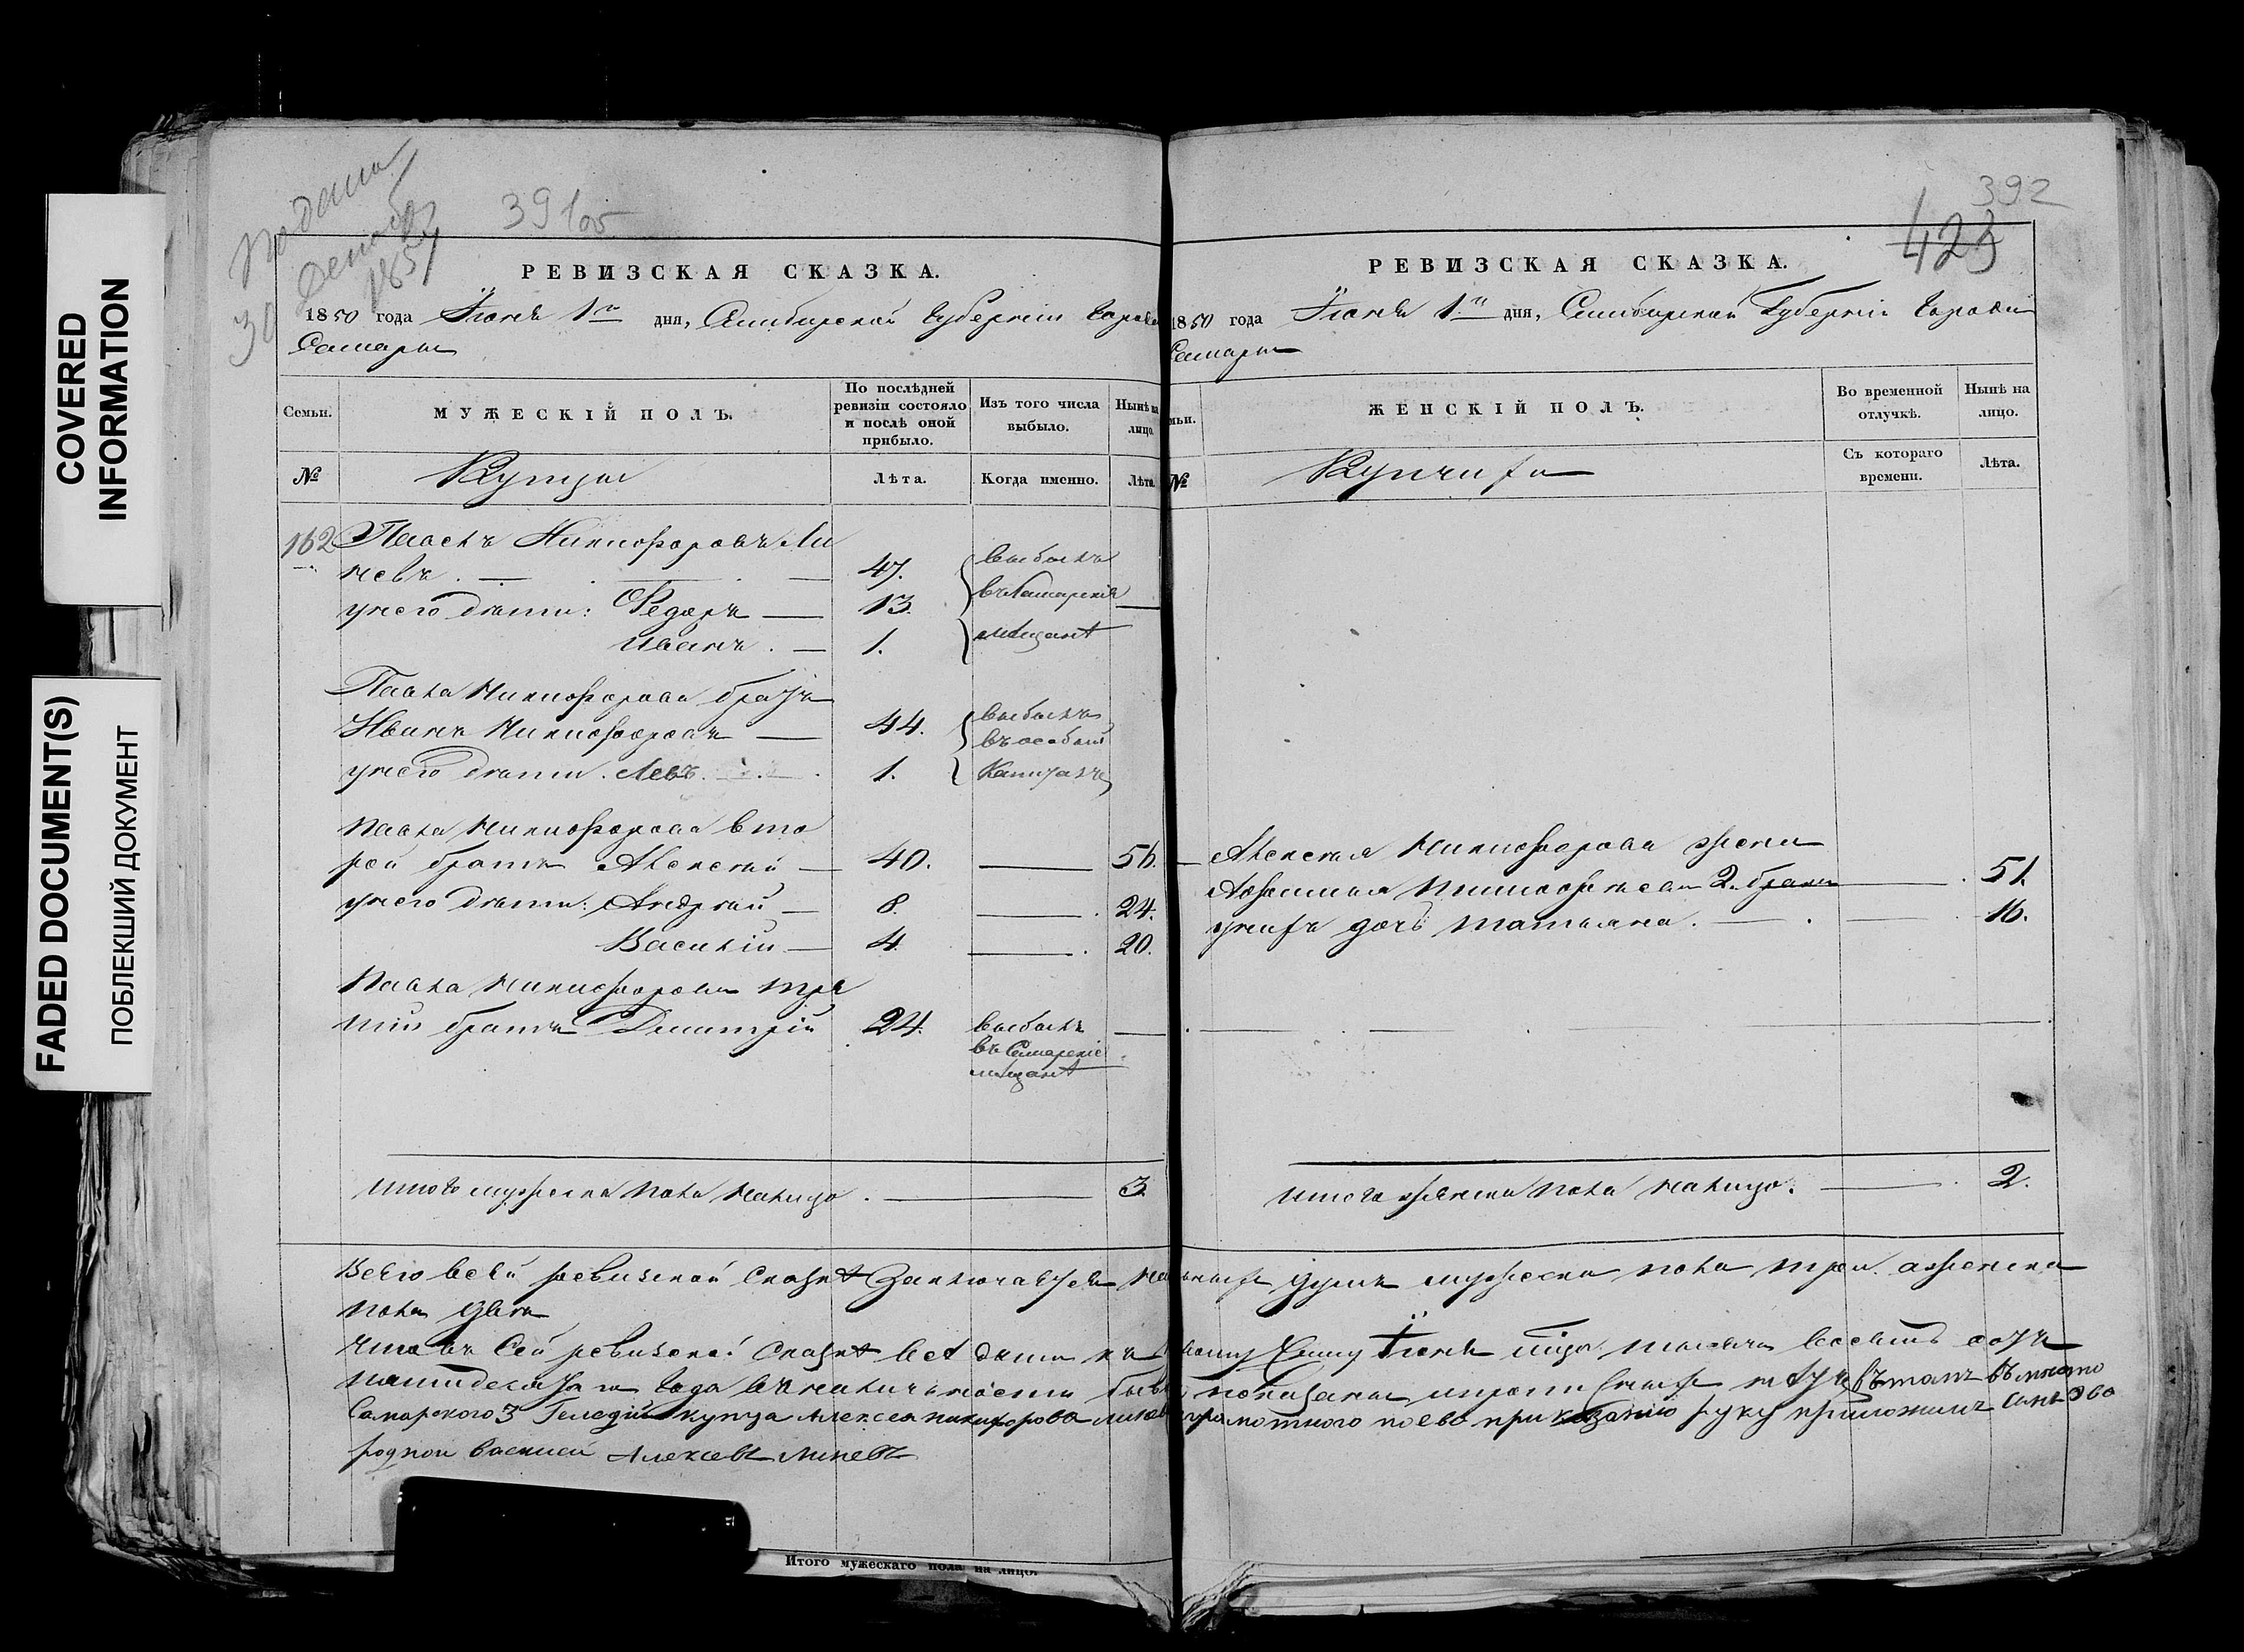 COVERED
INFORMATION
FADED DOCUMENT(S)
ПОБЛЕКШИЙ ДОКУМЕНТ
Подана
30 Декабр
1851
391об
РЕВИЗСКАЯ СКАЗКА.
1850 года Іюня 1го дня, Симбирской Губерніи Города
Самары
Семьи.
МУЖЕСКІЙ ПОЛЪ.
По послѣдней
ревизіи состояло
и послѣ оной
прибыло.
Изъ того числа
выбыло.
Нынѣ на
лицо.
№
Купцы
Лѣта.
Когда именно.
Лѣта
162 Павелъ Никифоровъ Ли
невъ. — 47. выбылъ
въ Самарскія
у него дѣти: Федоръ — 13. —
Иванъ. — 1. мѣщанѣ
Павла Никифорова братъ
Иванъ Никифоровъ — 44. выбылъ
въ особый
у него дѣти. Левъ. 1. Капиталъ
Павла Никифорова вто
рой братъ Алексѣй — 40. — 56.
у него дѣти: Андрѣй — 8. — 24.
Василій — 4. — 20.
Павла Никифорова тре
тій братъ Дмитрій 24. выбылъ —
въ Самарскіе
мѣщанѣ
итого мужеска пола налицо. — 3.
392
423
РЕВИЗСКАЯ СКАЗКА.
1850 года Іюня 1го дня, Симбирской Губерніи Города
Самары
мьи.
ЖЕНСКІЙ ПОЛЪ.
Во временной
отлучкѣ.
Нынѣ на
лицо.
№
Купчихи
Съ котораго
времени.
Лѣта.
Алексѣя Никифорова жена
2. брака — 51.
у нихъ дочь Татьяна. — 16.
итого женска пола налицо. — 2.
Всего въ сей ревизской сказкѣ заключается душъ мужеска пола три. а женска
пола двѣ
Что въ сей ревизской сказкѣ всѣ души къ Іюня тысяча восемь сотъ
пятидесятаго года въ наличности показаны
Самарского 3 Гелдій купца Алексея никифорова грамотного по ево приказанію руку приложилъ сынъ ево
родной василей Алексевъ линевъ
Итого мужескаго пола на лицо.